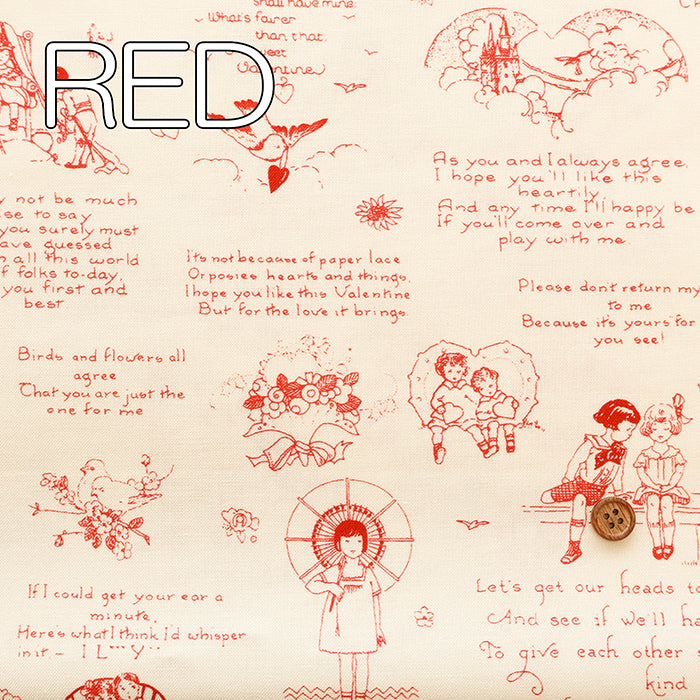 shall have mine
What's fairer
than that,
Valentine
RED
As you and I always agree,
I hope you'll like this
heartily
And any time I'll happy be
If you'll come over and
play with me.
not be much
se to say
you surely must
ave guessed
all this world
f folks to-day,
you first and
best
It's not because of paper lace
Or posies hearts and things,
I hope you like this Valentine
But for the love it brings.
Please don't return my
to me
Because it's yours for
you see!
Birds and flowers all
agree
That you are just the
one for me
If I could get your ear a
minute,
Here's what I think I'd whisper
in it - I L*** Y**
Let's get our heads to
And see if we'll ha
To give each other s
kind